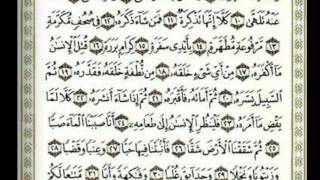 عَنْهُ تَلَهَّىٰ ١٠ كَلَّا إِنَّهَا تَذْكِرَةٌ ١١ فَمَن شَآءَ ذَكَرَهُۥ ١٢ فِى صُحُفٍ مُّكَرَّمَةٍ
١٣ مَّرْفُوعَةٍ مُّطَهَّرَةٍۭ ١٤ بِأَيْدِى سَفَرَةٍ ١٥ كِرَامٍۭ بَرَرَةٍ ١٦ قُتِلَ ٱلْإِنسَٰنُ
مَآ أَكْفَرَهُۥ ١٧ مِنْ أَىِّ شَىْءٍ خَلَقَهُۥ ١٨ مِن نُّطْفَةٍ خَلَقَهُۥ فَقَدَّرَهُۥ ١٩ ثُمَّ
ٱلسَّبِيلَ يَسَّرَهُۥ ٢٠ ثُمَّ أَمَاتَهُۥ فَأَقْبَرَهُۥ ٢١ ثُمَّ إِذَا شَآءَ أَنشَرَهُۥ ٢٢ كَلَّا لَمَّا
يَقْضِ مَآ أَمَرَهُۥ ٢٣ فَلْيَنظُرِ ٱلْإِنسَٰنُ إِلَىٰ طَعَامِهِۦٓ ٢٤ أَنَّا صَبَبْنَا ٱلْمَآءَ صَبًّا
٢٥ ثُمَّ شَقَقْنَا ٱلْأَرْضَ شَقًّا ٢٦ فَأَنۢبَتْنَا فِيهَا حَبًّا ٢٧ وَعِنَبًا وَقَضْبًا ٢٨
وَزَيْتُونًا وَنَخْلًا ٢٩ وَحَدَآئِقَ غُلْبًا ٣٠ وَفَٰكِهَةً وَأَبًّا ٣١ مَّتَٰعًا لَّكُمْ